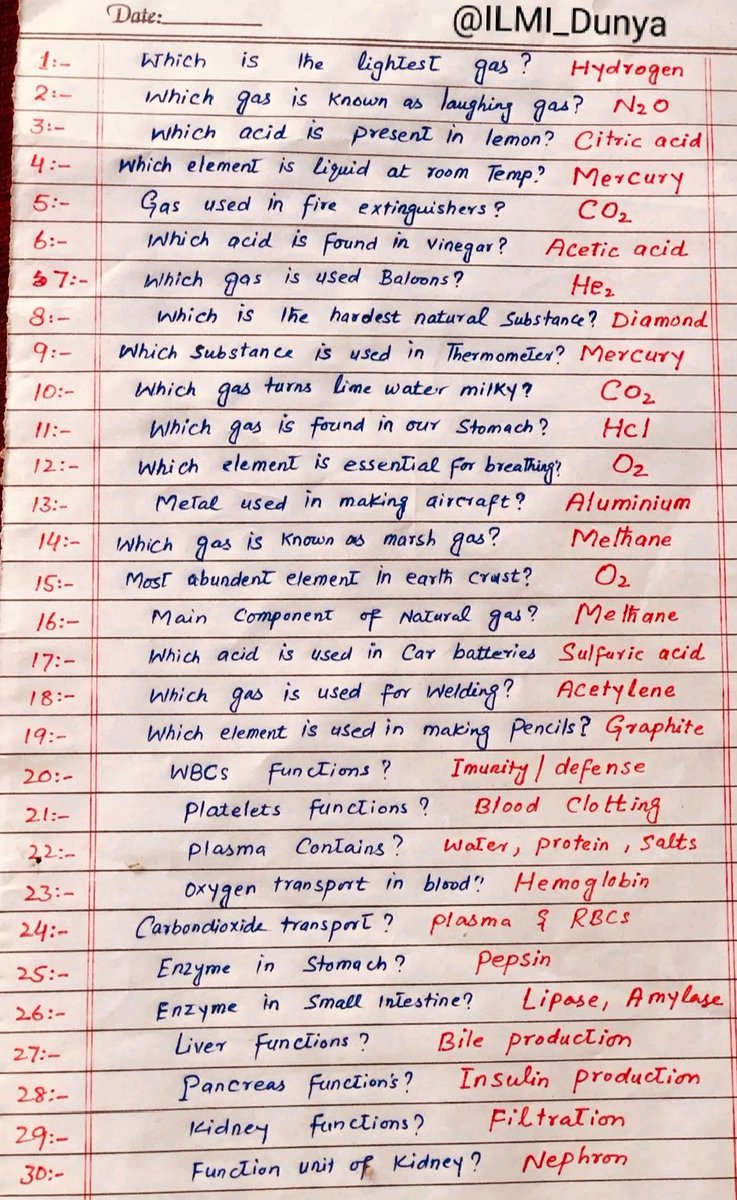 Date: @ILMI_Dunya
1:- Which is the lightest gas? Hydrogen
2:- Which gas is known as laughing gas? N₂O
3:- Which acid is present in lemon? Citric acid
4:- Which element is liquid at room Temp? Mercury
5:- Gas used in fire extinguishers? CO₂
6:- Which acid is found in vinegar? Acetic acid
7:- Which gas is used Baloons? He₂
8:- Which is the hardest natural substance? Diamond
9:- Which substance is used in Thermometer? Mercury
10:- Which gas turns lime water milky? CO₂
11:- Which gas is found in our Stomach? Hcl
12:- Which element is essential for breathing? O₂
13:- Metal used in making aircraft? Aluminium
14:- Which gas is known as marsh gas? Methane
15:- Most abundent element in earth crust? O₂
16:- Main Component of Natural gas? Methane
17:- Which acid is used in Car batteries Sulfuric acid
18:- Which gas is used for welding? Acetylene
19:- Which element is used in making Pencils? Graphite
20:- WBCs functions? Imunity/defense
21:- Platelets functions? Blood Clotting
22:- Plasma Contains? Water, protein, salts
23:- Oxygen transport in blood? Hemoglobin
24:- Carbondioxide transport? Plasma & RBCs
25:- Enzyme in Stomach? Pepsin
26:- Enzyme in Small Intestine? Lipase, Amylase
27:- Liver functions? Bile production
28:- Pancreas Function's? Insulin production
29:- Kidney functions? Filtration
30:- Function unit of Kidney? Nephron